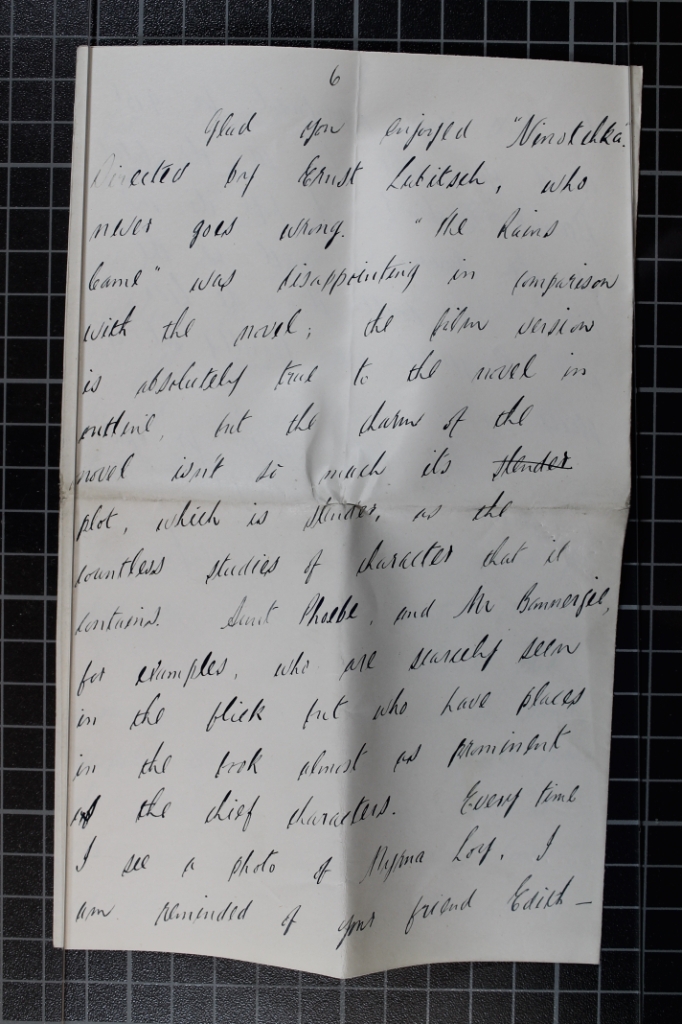 6
Glad you enjoyed "Ninotchka".
Directed by Ernst Lubitsch, who
never goes wrong. "The Rains
Came" was disappointing in comparison
with the novel; the film version
is absolutely true to the novel in
outline, but the charm of the
novel isn't so much its slender
plot, which is slender, as the
countless studies of character that it
contains. Aunt Phoebe, and Mr Bannerjee,
for examples, who are scarcely seen
in the flick but who have places
in the book almost as prominent
as the chief characters. Every time
I see a photo of Myrna Loy, I
am reminded of your friend Edith —